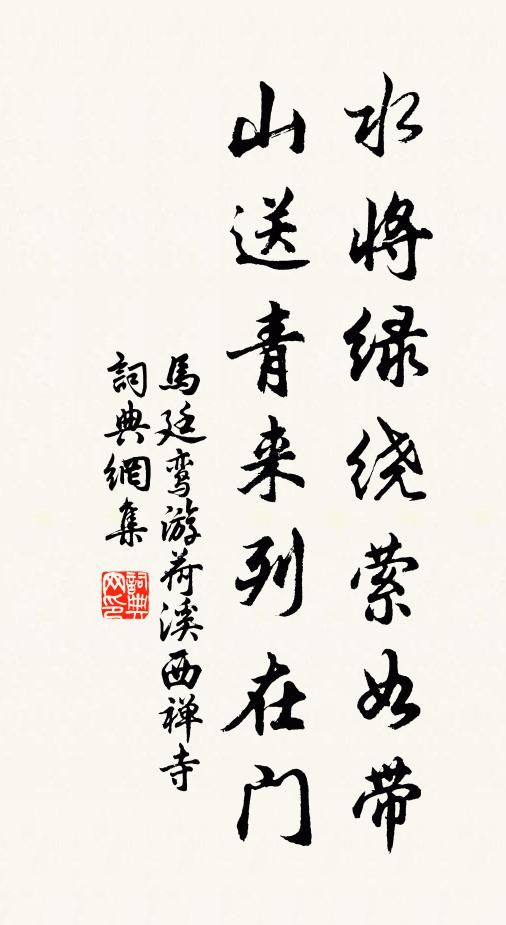 水将绿绕萦如带
山送青来列在门
馬廷鸾游荷溪西禅寺
詞典網集
詞典网印